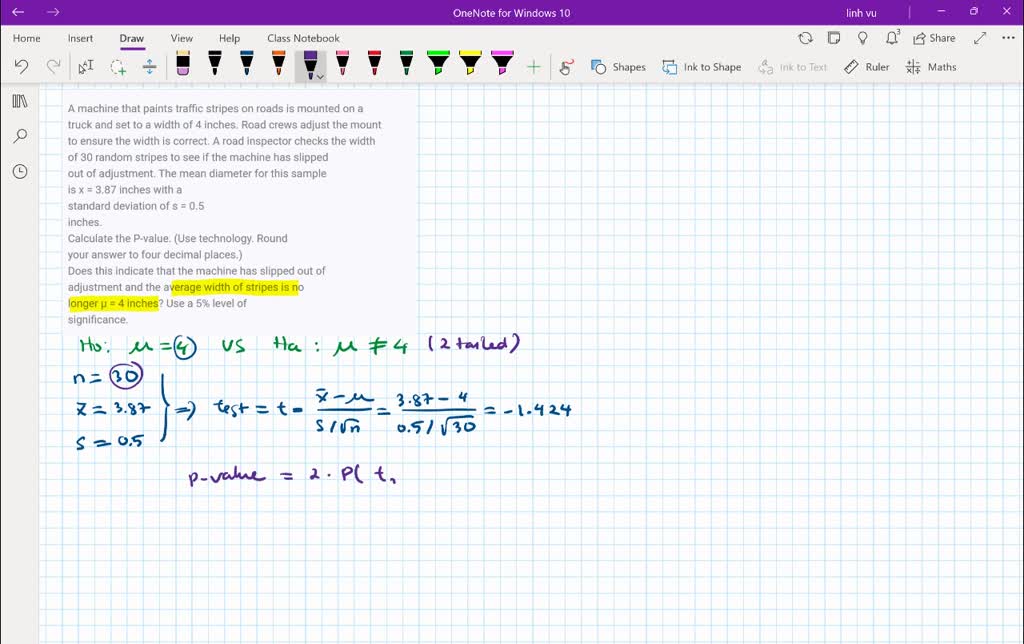 OneNote for Windows 10
linh vu
Home Insert Draw View Help Class Notebook
Share
Shapes Ink to Shape Ink to Text Ruler Maths
A machine that paints traffic stripes on roads is mounted on a
truck and set to a width of 4 inches. Road crews adjust the mount
to ensure the width is correct. A road inspector checks the width
of 30 random stripes to see if the machine has slipped
out of adjustment. The mean diameter for this sample
is x = 3.87 inches with a
standard deviation of s = 0.5
inches.
Calculate the P-value. (Use technology. Round
your answer to four decimal places.)
Does this indicate that the machine has slipped out of
adjustment and the average width of stripes is no
longer μ = 4 inches? Use a 5% level of
significance.
Ho: μ = 4 vs Ha: μ ≠ 4 (2 tailed)
n = 30
x̄ = 3.87 => test = t = x̄ - μ / s/√n = 3.87 - 4 / 0.5/√30 = -1.424
s = 0.5
p-value = 2 . P( t,